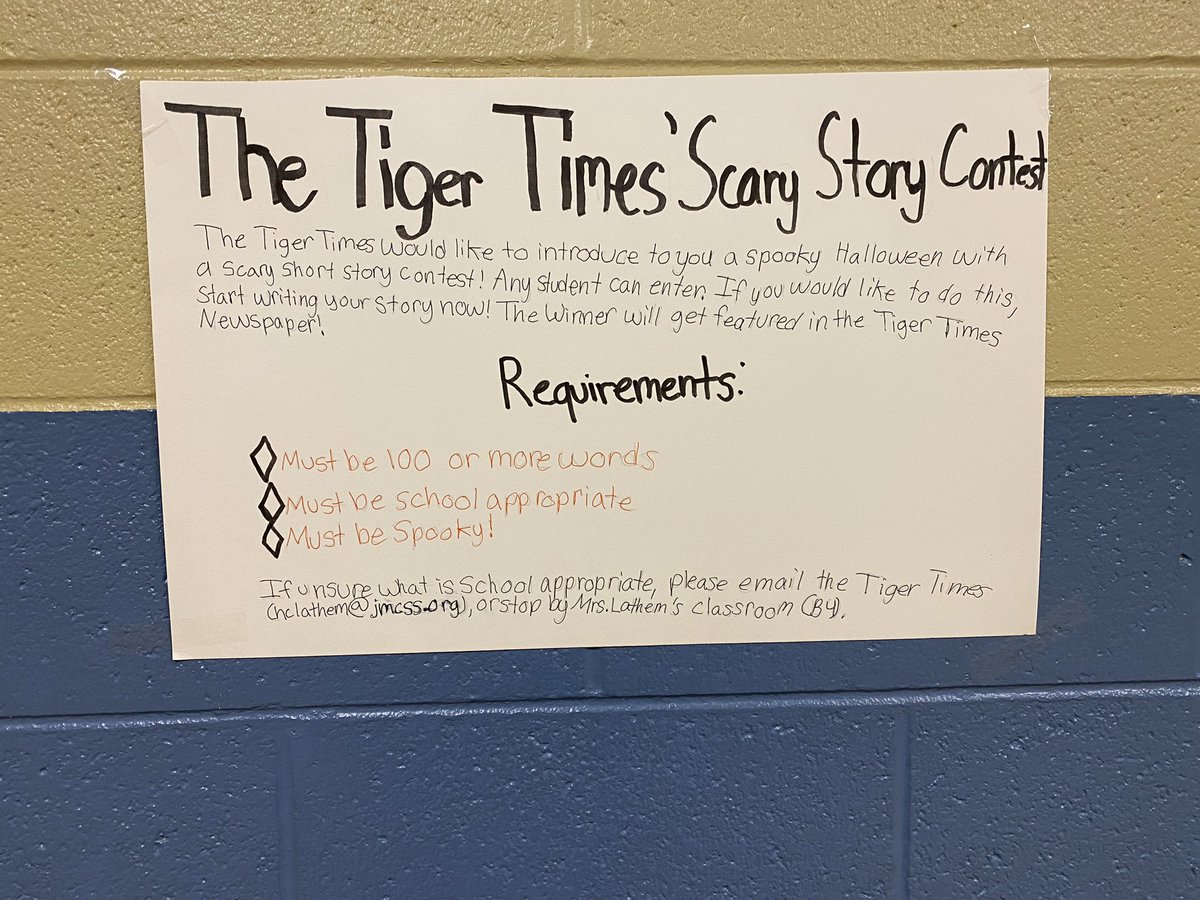 The Tiger Times' Scary Story Contest
The Tiger Times would like to introduce to you a spooky Halloween with
a scary short story contest! Any student can enter. If you would like to do this,
start writing your story now! The winner will get featured in the Tiger Times
Newspaper!
Requirements:
Must be 100 or more words
Must be school appropriate
Must be Spooky!
If unsure what is School appropriate, please email the Tiger Times
(hclathem@jmcss.org), or stop by Mrs. Lathem's classroom (B4).